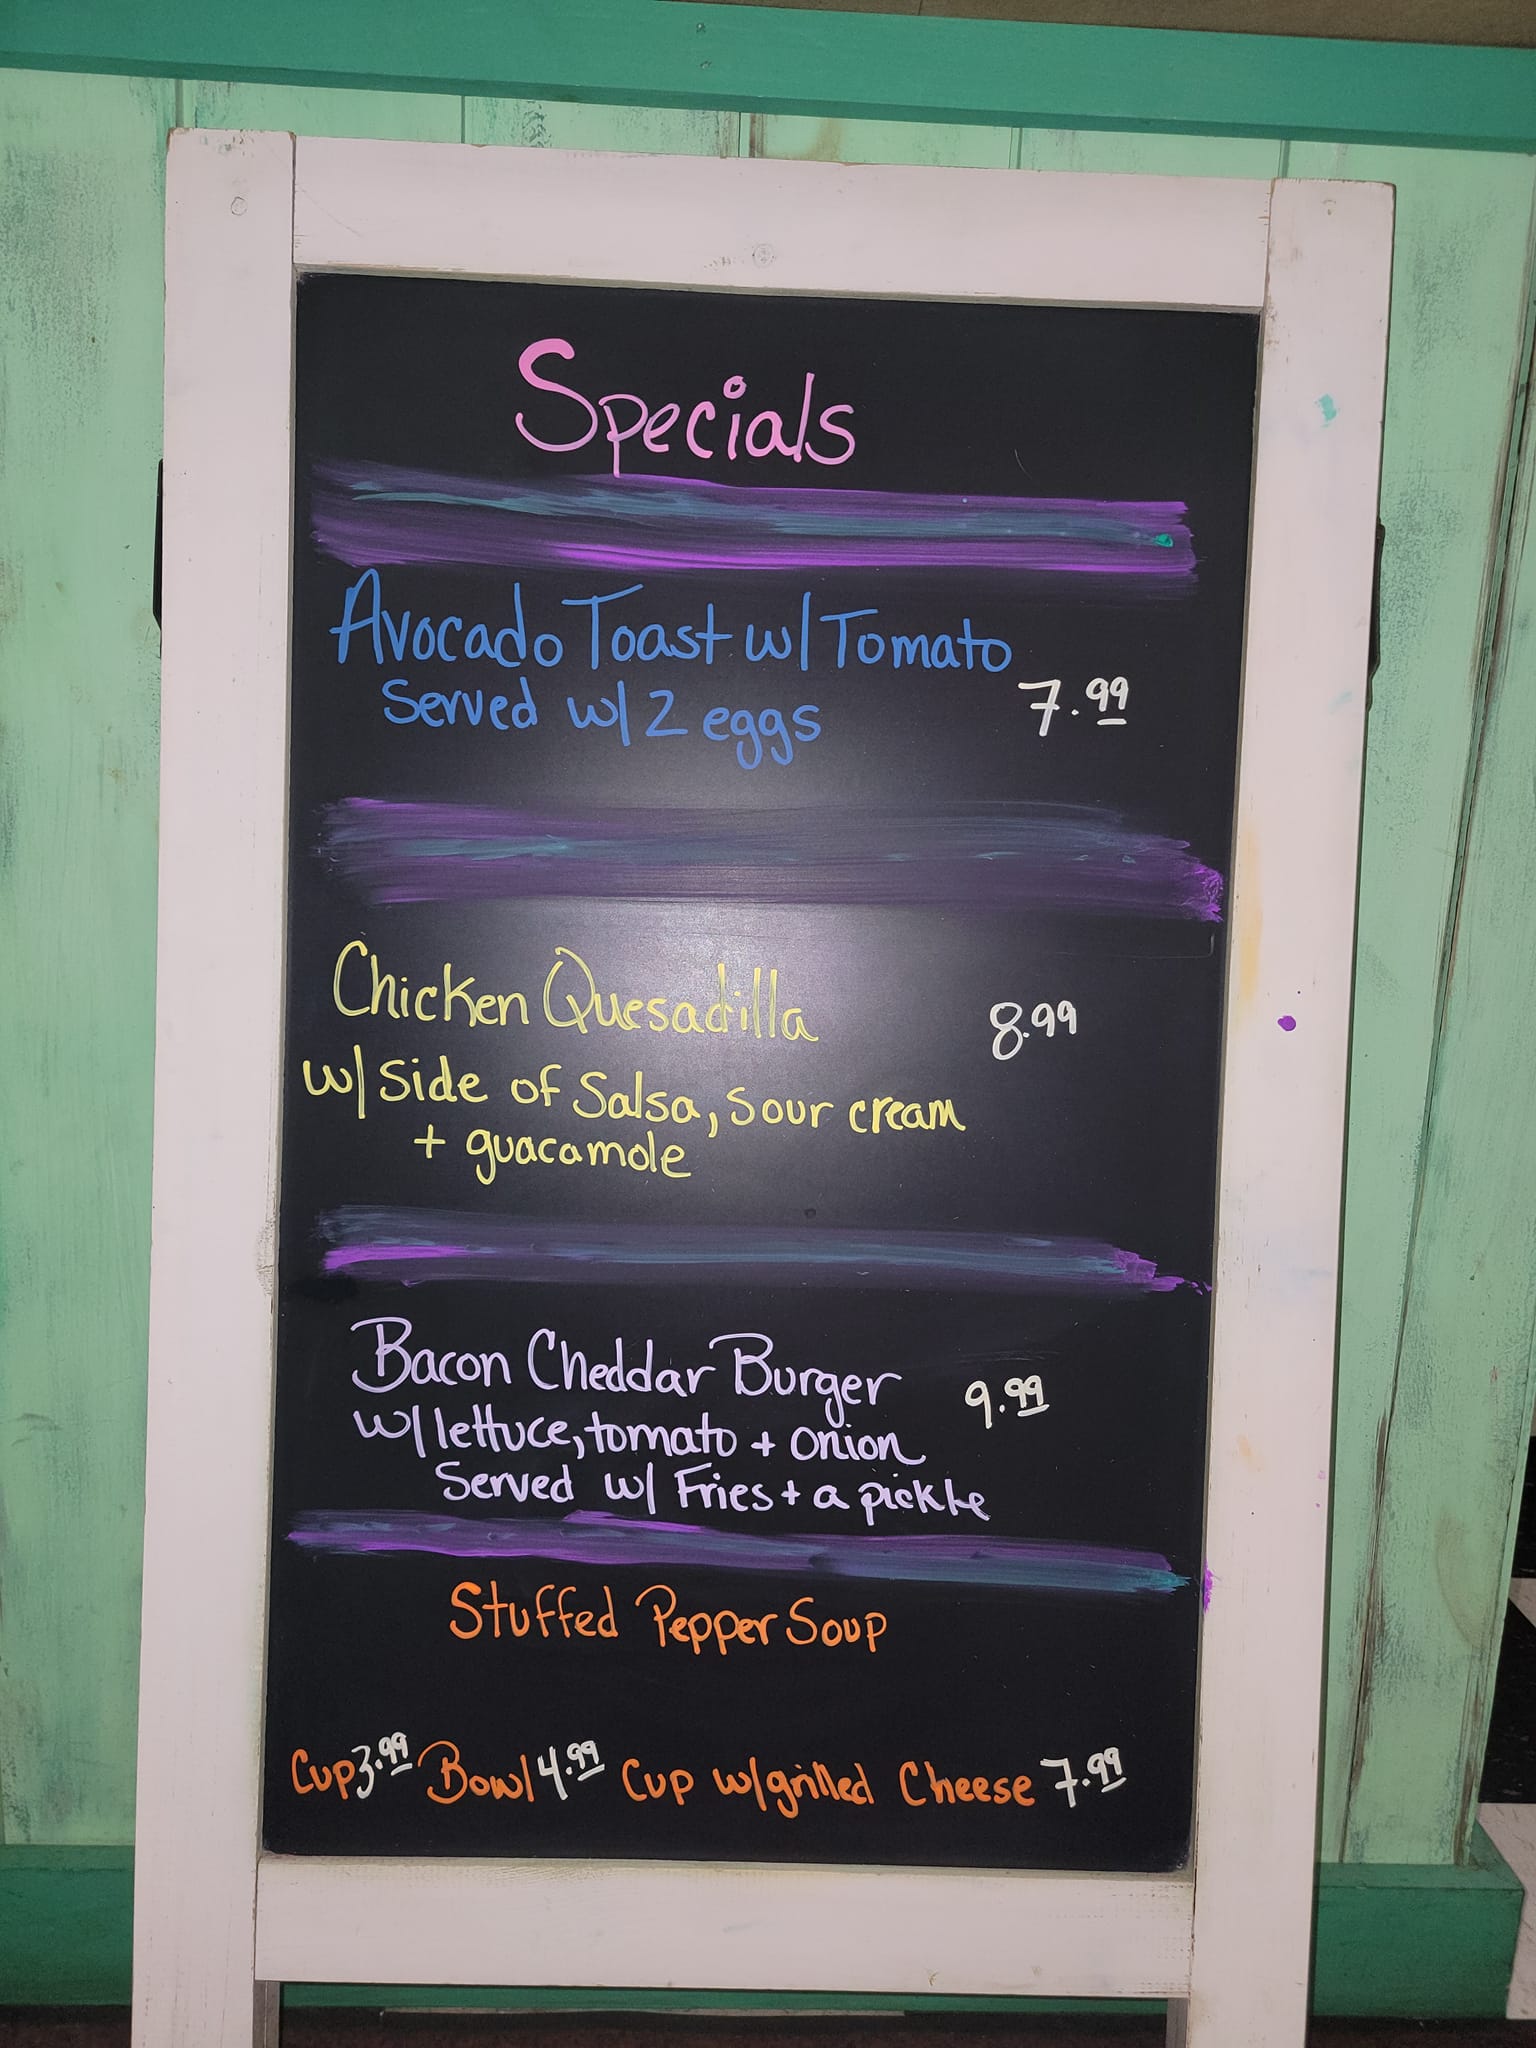 Specials
Avocado Toast w/ Tomato
Served w/ 2 eggs 7.99
Chicken Quesadilla 8.99
w/ side of Salsa, sour cream
+ guacamole
Bacon Cheddar Burger 9.99
w/ lettuce, tomato + onion
Served w/ Fries + a pickle
Stuffed Pepper Soup
Cup 3.99 Bowl 4.99 Cup w/ grilled Cheese 7.99